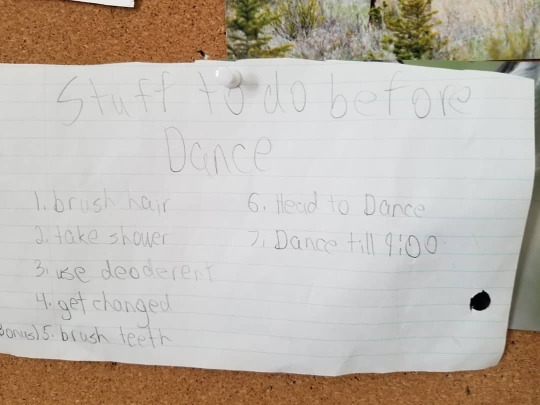 Stuff to do before
Dance
1. brush hair
2. take shower
3. use deoderent
4. get changed
Bonus) 5. brush teeth
6. Head to Dance
7. Dance till 9:00